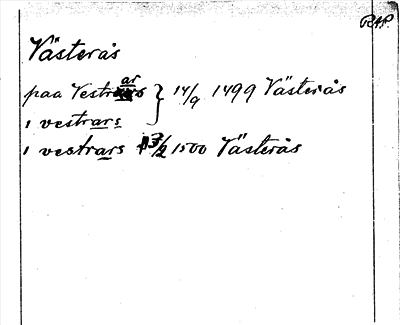 RAP.
Västerås
paa Vestrars } 14/9 1499 Västerås
i vestrars
i vestrars 13/2 1500 Västerås